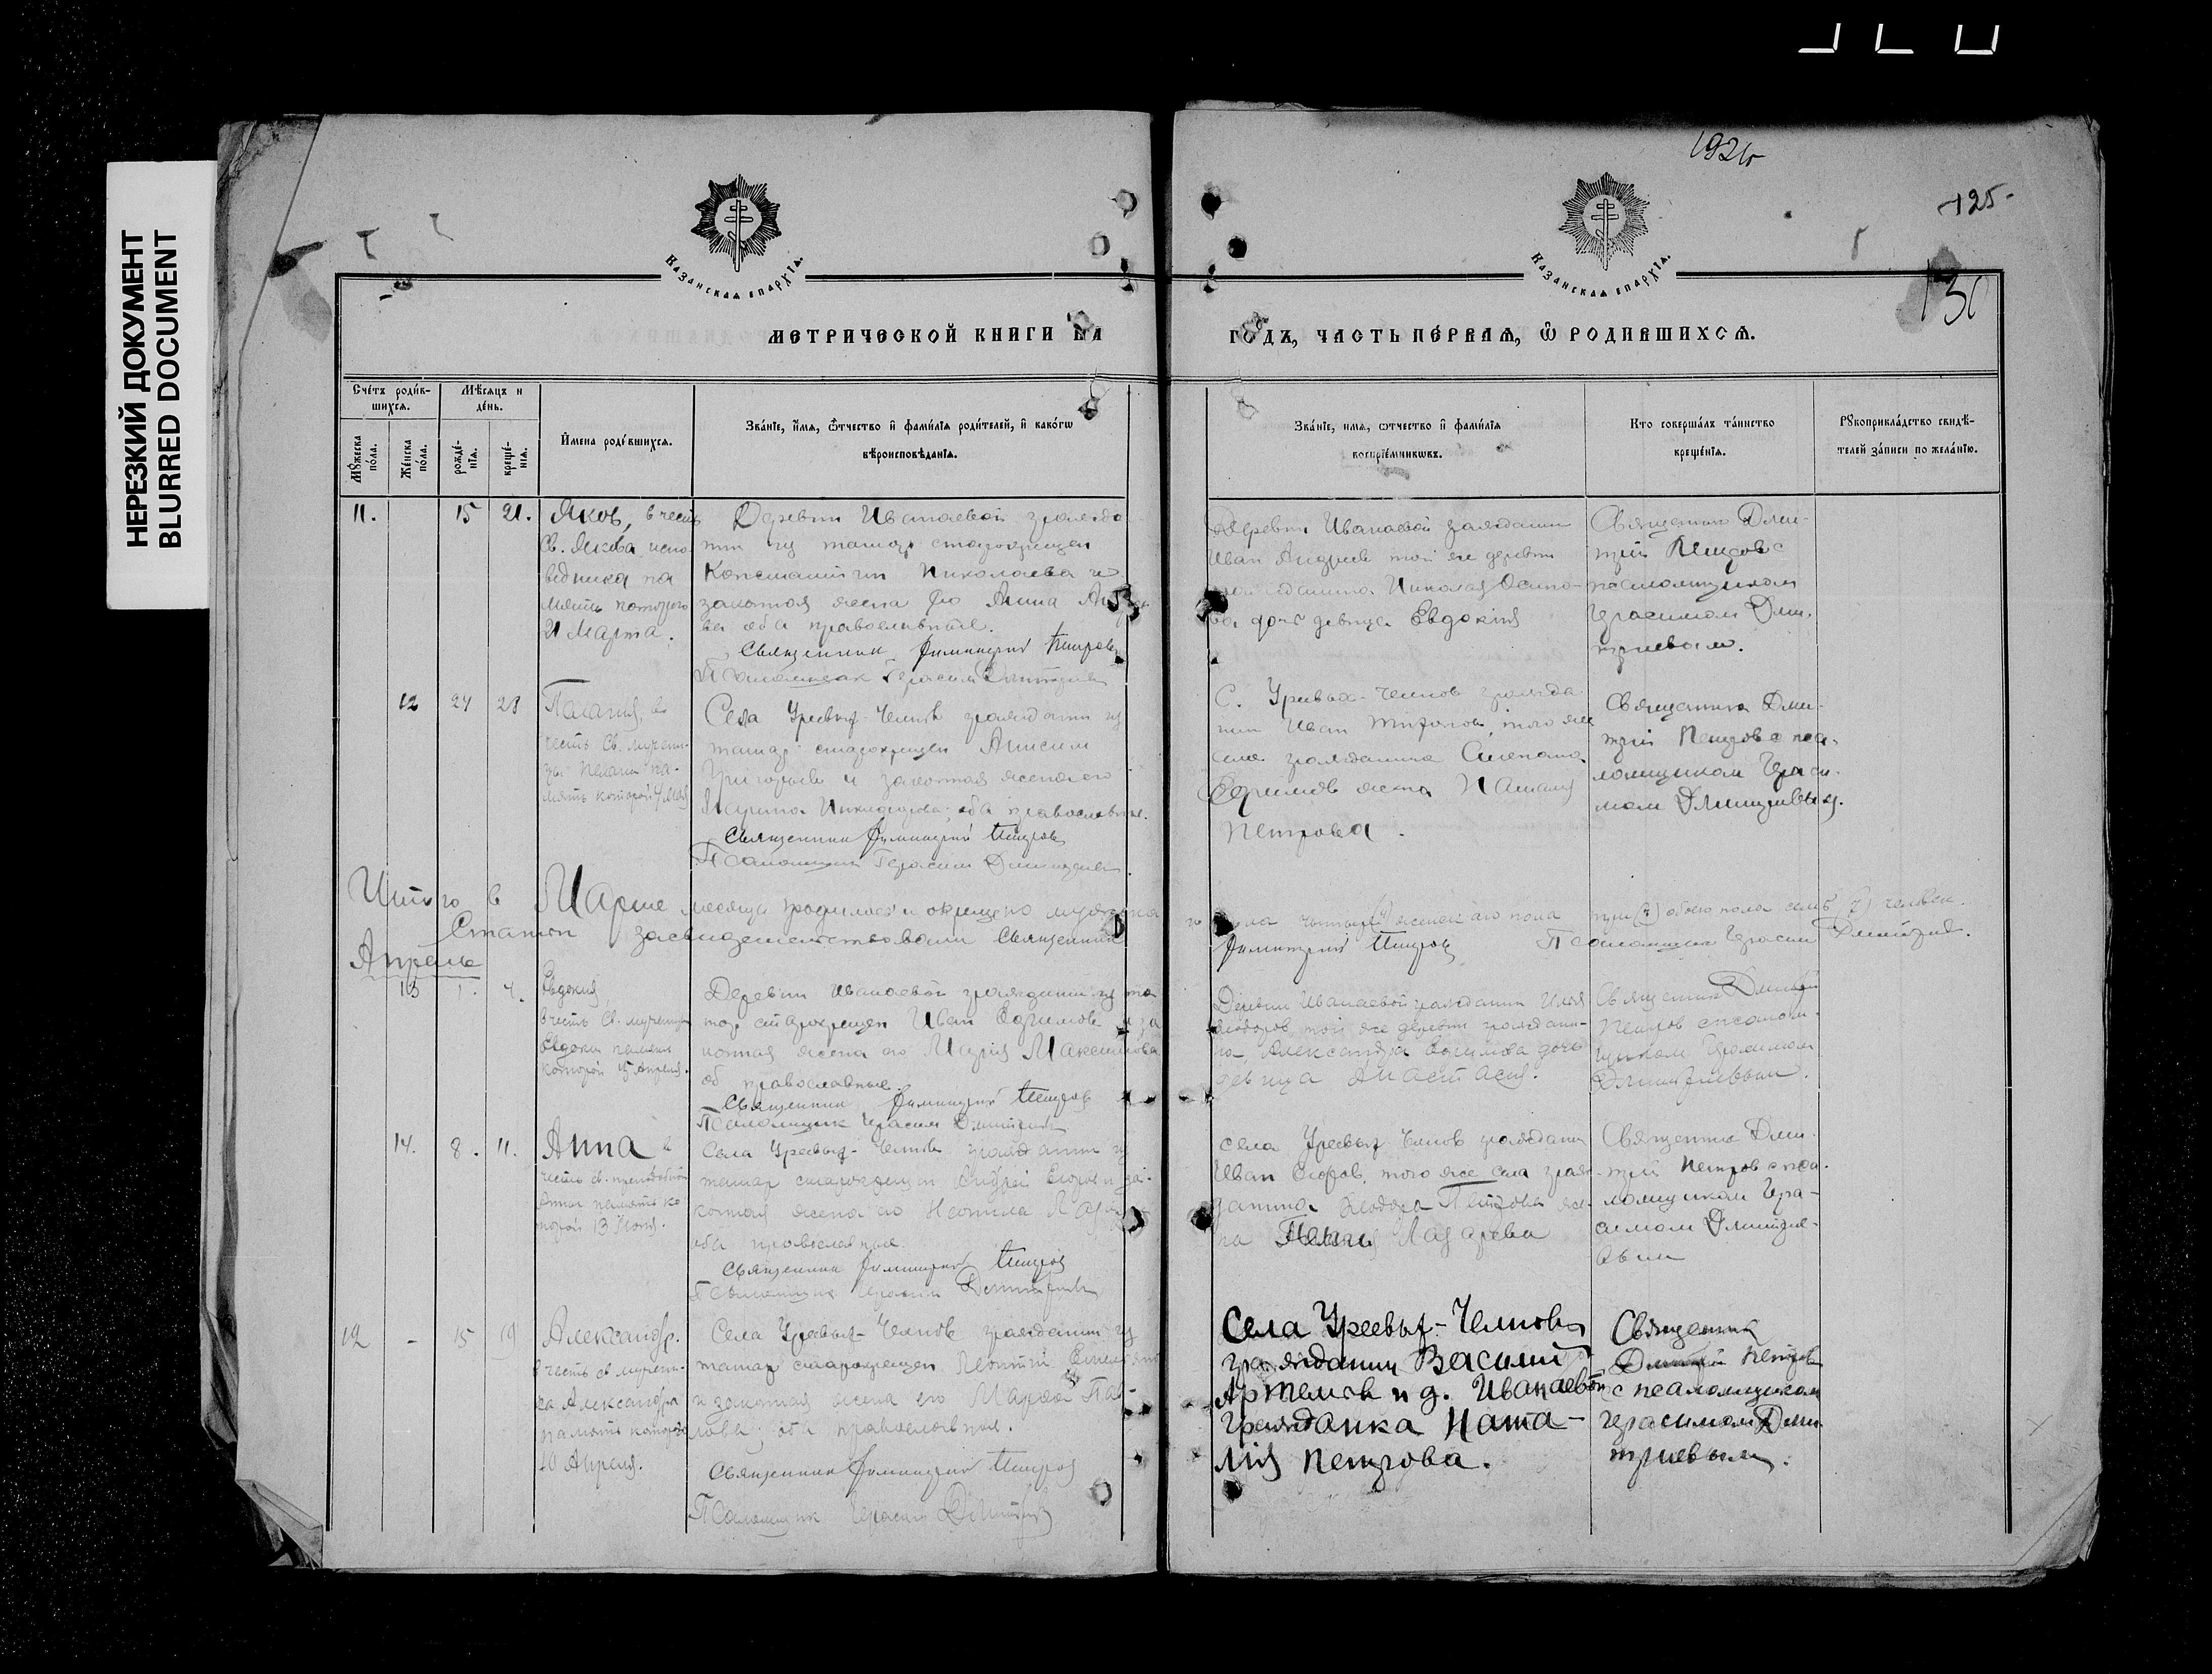 НЕРЕЗКИЙ ДОКУМЕНТ
BLURRED DOCUMENT
125
КАЗАНСКАЯ ЕПАРХІЯ.
КАЗАНСКАЯ ЕПАРХІЯ.
МЕТРИЧЕСКОЙ КНИГИ НА
ГОДЪ, ЧАСТЬ ПЕРВАЯ, Ѽ РОДИВШИХСЯ.
Счетъ родив-
шихся.
Мѣсяцъ и
день.
Мужеска
пола.
Женска
пола.
рожде-
нія.
креще-
нія.
Имена родившихся.
Званіе, имя, отчество и фамилія родителей, и какогω
вѣроисповѣданія.
Званіе, имя, отчество и фамилія
воспріемниковъ.
Кто совершалъ таинство
крещенія.
Рукоприкладство свидѣ-
телей записи по желанію.
11. 15 21.
Яков, в честь
Св. Якова испо-
ведника па
мять которого
21 Марта.
Деревни Иванаевой гражда
нин из татар старокрещен
Константин Николаева и
законная жена его Анна
ва оба православные.
Священник Димитрий Петров
Псаломщик Герасим Дмитриев
Деревни Иванаевой гражданин
Иван Андреев той же деревни
гражданина Николая Осипо-
ва дочь девица Евдокия
Священник Дми-
трий Петров с
псаломщиком
Герасимом Дми-
триевым.
12 24 28
Пелагия, в
честь Св. мучени-
цы Пелагии па-
мять которой 4 Мая
Села Уреевых-Челнов гражданин из
татар старокрещен Анисим
Григорьев и законная жена его
оба православные.
Священник Димитрий Петров
Псаломщик Герасим Дмитриев
С. Уреевых-Челнов гражда
нин Иван того же
села гражданина Степана
Ефимова жена Наталия
Петрова.
Священник Дми-
трий Петров с пса-
ломщиком Гераси-
мом Дмитриевым.
Итого в Марте месяце родилось и окрещено мужска
го пола четыре (4) женскаго пола три (3) обоего пола семь (7) человек.
засвидетельствовали Священник
Димитрий Петров Псаломщик Герасим Дмитриев.
Апрель
13 1. 4.
Евдокия,
в честь Св. мученицы
Евдокии память
которой Апреля.
Деревни Иванаевой гражданин из та
тар старокрещен Иван Ефимов и за
конная жена его Мария Максимова
об православные.
Священник Димитрий Петров
Псаломщик Герасим Дмитриев
Деревни Иванаевой гражданин Илья
Феодоров той же деревни граждани-
на Александра Ефимова дочь
девица Анастасия.
Священник Дмитрий
Петров с псалом-
щиком Герасимом
Дмитриевым.
14. 8. 11.
Анна в
честь св. преподобной
Анны память ко
торой 13 Июня.
Села Уреевых-Челнов гражданин из
татар старокрещен Андрей Егоров и за-
конная жена его Неонила
оба православные.
Священник Димитрий Петров
Псаломщик Герасим Дмитриев
села Уреевых Челнов гражданин
Иван того же села граж-
данина Феодора Петрова же-
на Пелагия Лазарева
Священник Дми-
трий Петров с пса-
ломщиком Гера-
симом Дмитрие-
вым
12 - 15 19
Александр.
в честь св мучени-
ка Александра
память которого
10 Апреля.
Села Уреевых-Челнов гражданин из
татар старокрещен Леонтий
и законная жена его Марфа Пав-
лова; оба православные.
Священник Димитрий Петров
Псаломщик Герасим Дмитриев
Села Уреевых-Челнов
гражданин Василий
Артемов и д. Иванаевой
гражданка Ната-
лия Петрова.
Священник
Дмитрий Петров
с псаломщиком
Герасимом Дми
триевым.